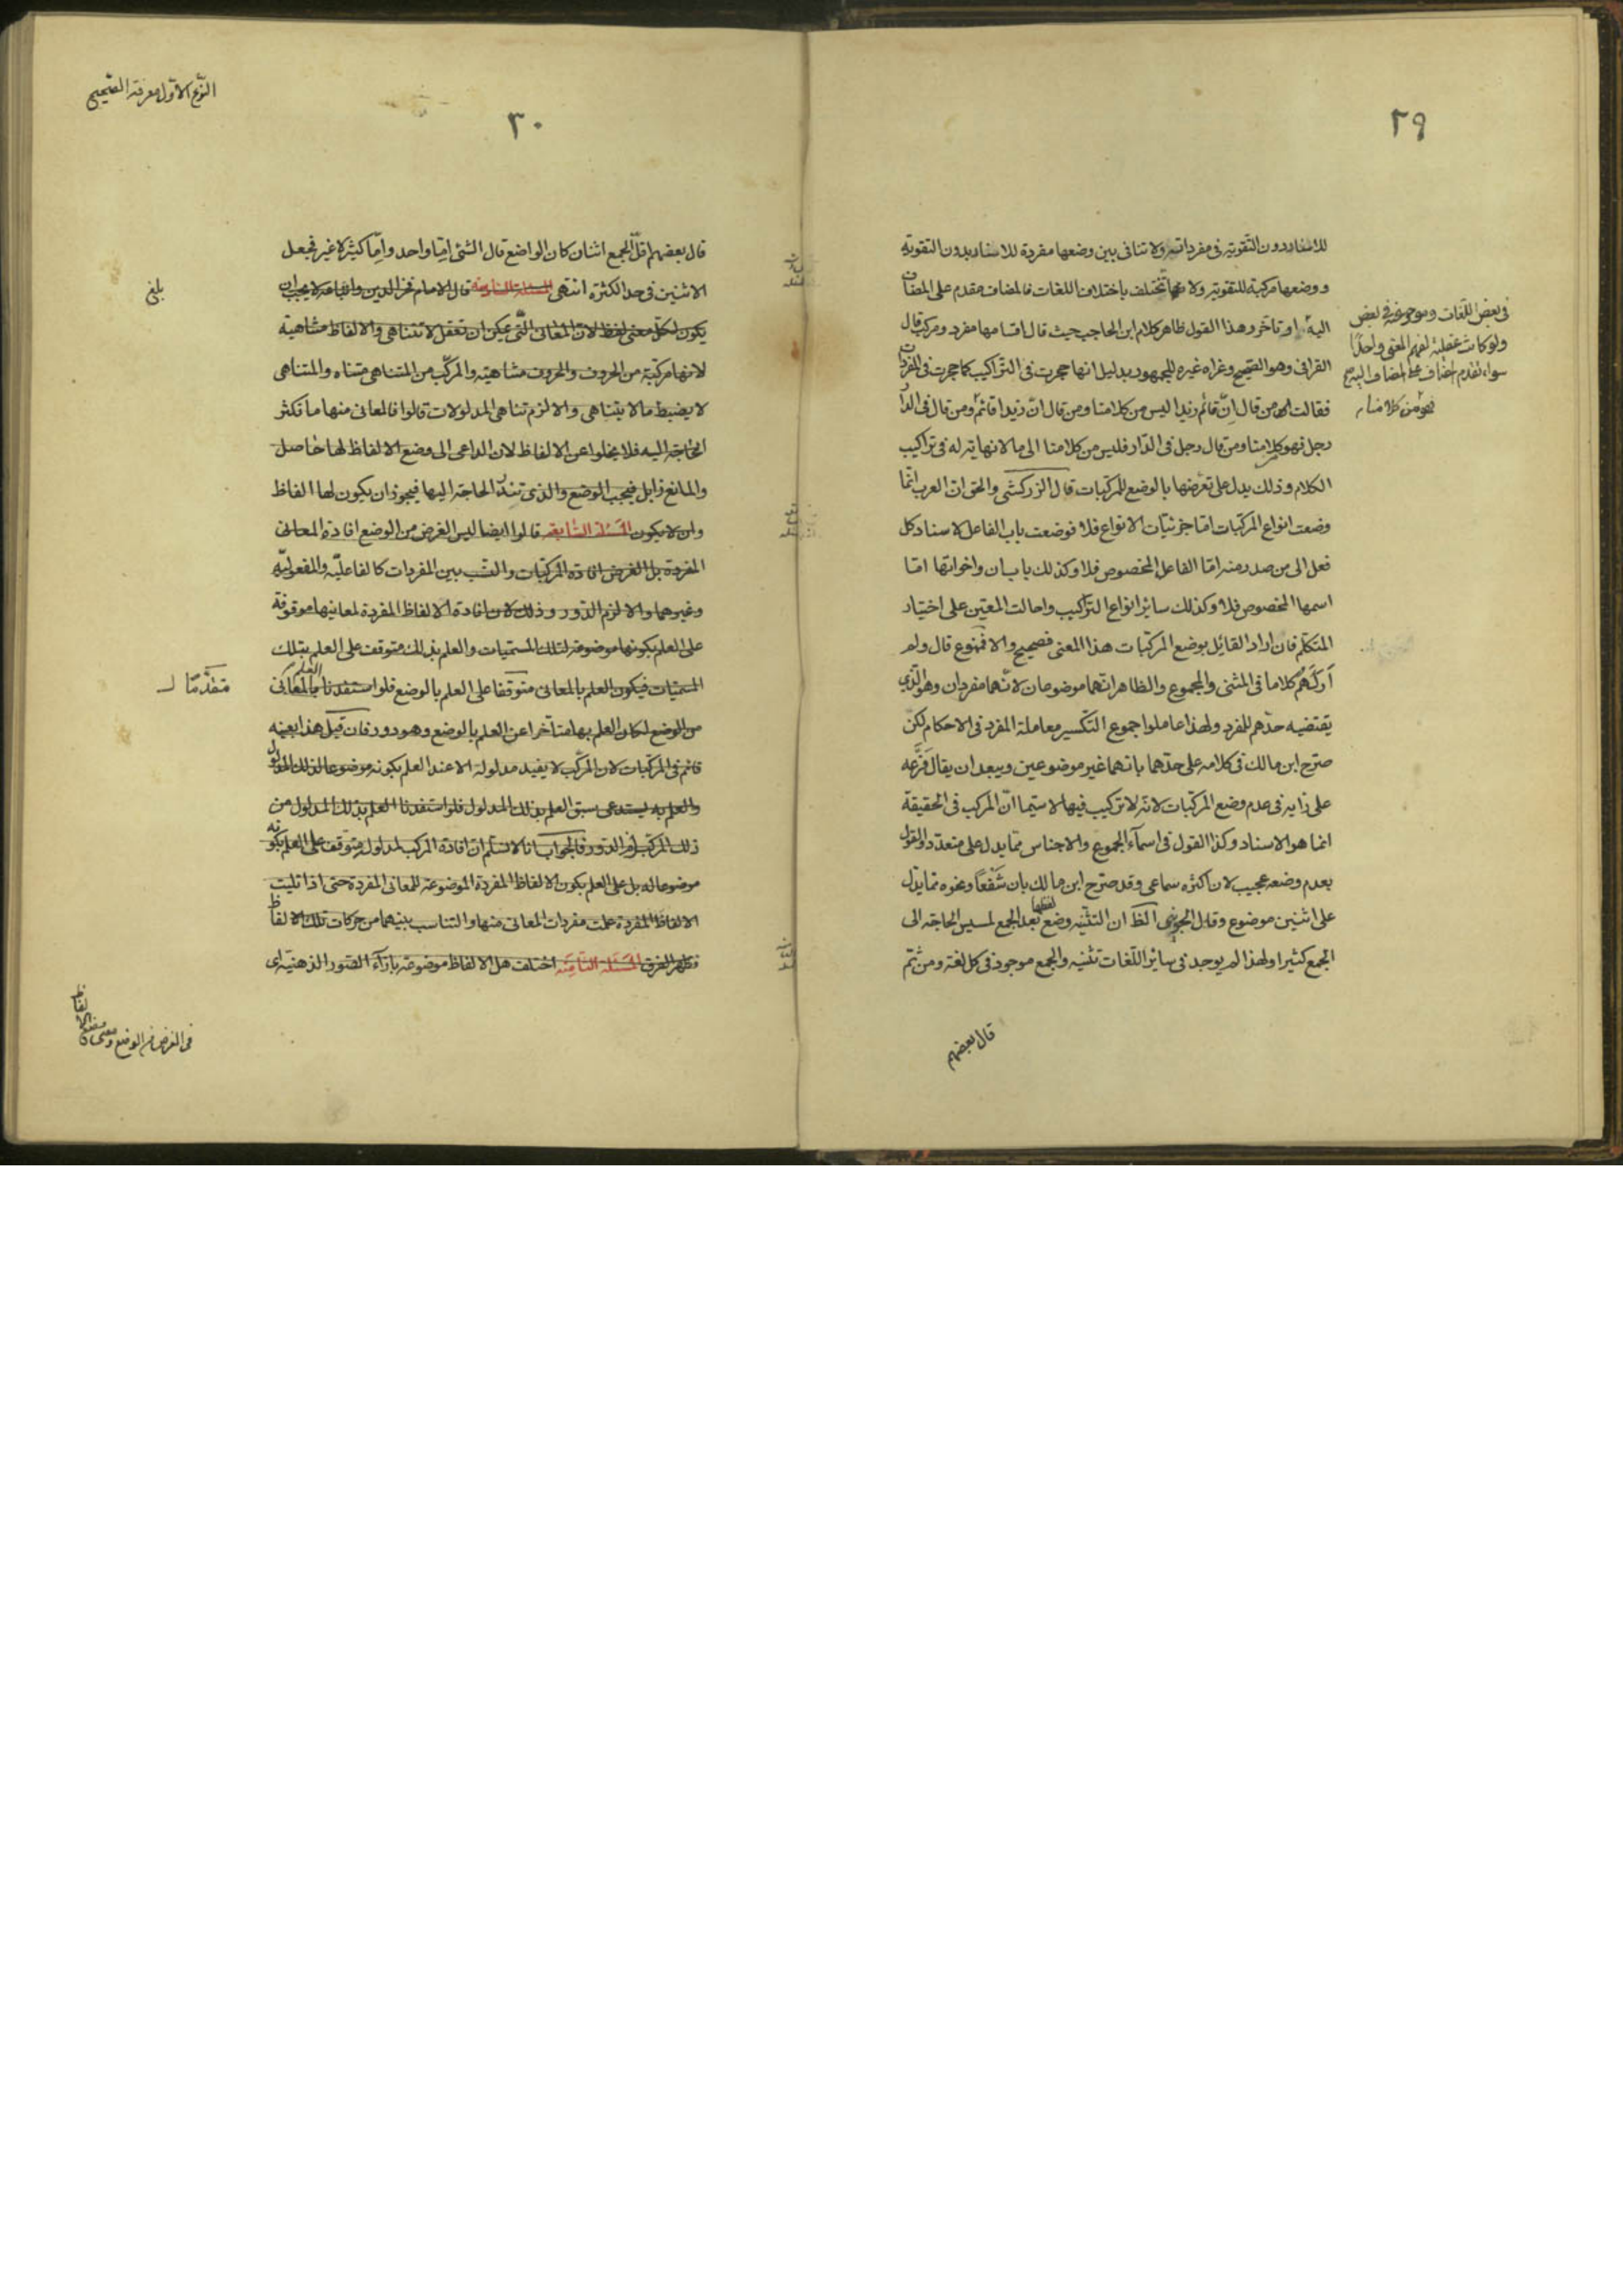 ٢٩
للاسناد دون التقوية فى مفرداته ولا تنافى بين وضعها مفردة للاسناد بدون التقوية
ووضعها مركبة للتقوية ولا تختلف باختلاف اللغات فالمضاف مقدم على المضاف
فى بعض اللغات وموخر عنه فى بعض
ولو كانت عقلية لفهم المعنى واحدا
سواء تقدم المضاف على المضاف اليه صح
اليه او تاخر وهذا القول ظاهر كلام ابن الحاجب حيث قال اقسامها مفرد ومركب قال
القرافى وهو الصحيح وعزاه غيره للجمهور بدليل انها حجرت فى التراكيب كما حجرت فى المفردات
فقالت من قال انّ قائم زيدا ليس من كلامنا ومن قال انّ زيدا قائم فهو من كلامنا ومن قال فى الدار
رجل فهو كلامنا ومن قال رجل فى الدّار فليس من كلامنا الى ما لا نهاية له فى تراكيب
الكلام وذلك يدل على تعرّضها بالوضع للمركبات قال الزركشى والحق انّ العرب انّما
وضعت انواع المركّبات امّا جزئيّات الانواع فلا فوضعت باب الفاعل لاسناد كل
فعل الى من صدر منه امّا الفاعل المخصوص فلا وكذلك باب ان واخواتها امّا
اسمها المخصوص فلا وكذلك سائر انواع التراكيب واحالت المعيّن على اختيار
المتكلّم فان اراد القائل بوضع المركّبات هذا المعنى فصحيح والا فممنوع قال ولم
أر لهم كلاما فى المثنى والمجموع والظاهر انّهما موضوعان لانّهما مفردان وهو الّذى
يقتضيه حدّهم للمفرد ولهذا عاملوا جموع التكسير معاملة المفرد فى الاحكام لكن
صرّح ابن مالك فى كلامه على حدّهما بانهما غير موضوعين ويبعد ان يقال فرّعه
على رأيه فى عدم وضع المركّبات لانّه لا تركيب فيها لا سيّما انّ المركب فى الحقيقة
انما هو الاسناد وكذا القول فى اسماء الجموع والاجناس ممّا يدل على متعدّد والقول
بعدم وضعه عجيب لان اكثره سماعى وقد صرّح ابن مالك بان شفعًا ونحوه ممّا يدلّ
على اثنين موضوع وقال الجوينى الظ ان التثنيه وضع لفظها بعد الجمع لمسيس الحاجة الى
الجمع كثيرا ولهذا لم يوجد فى سائر اللّغات تثنيه والجمع موجود فى كل لغة ومن ثمّ
قال بعضهم
النّوع الاوّل معرفة الصّحيح
٣٠
قال بعضهم اقلّ الجمع اثنان كان الواضع قال الشئ إمّا واحد وإمّا كثير لا غير فجعل
الاثنين فى حد الكثرة انتهى المسئلة السادسة قال الامام فخر الدين واتباعه لا يجب ان
بلغ
يكون لكلّ معنى لفظ لانّ المعانى الّتى يمكن ان تعقل لا تتناهى والالفاظ متناهية
لانها مركّبة من الحروف والحروف متناهية والمركّب من المتناهى متناه والمتناهى
لا يضبط ما لا يتناهى والا لزم تناهى المدلولات قالوا فالمعانى منها ما تكثر
الحاجة اليه فلا يخلوا عن الالفاظ لان الداعى الى وضع الالفاظ لها حاصل
والمانع زايل فيجب الوضع والذى تندر الحاجة اليها فيجوز ان يكون لها الفاظ
وان لا يكون المسئلة السّابعة قالوا ايضا ليس الغرض من الوضع افادة المعانى
المفردة بل الغرض افادة المركّبات والنّسب بين المفردات كالفاعليّة والمفعوليّة
وغيرهما والا لزم الدّور وذلك لان افادة الالفاظ المفردة لمعانيها موقوفة
على العلم بكونها موضوعة لتلك المسمّيات والعلم بذلك متوقف على العلم بتلك
المسمّيات فيكون العلم بالمعانى متوقّفا على العلم بالوضع فلو استفدنا العلم بالمعانى
متقدّما
من الوضع لكان العلم بها متأخرا عن العلم بالوضع وهو دور فان قيل هذا بعينه
قائم فى المركّبات لان المركّب لا يفيد مدلوله الا عند العلم بكونه موضوعا لذلك المدلول
والعلم به يستدعى سبق العلم بذلك المدلول فلو استفدنا العلم بذلك المدلول من
ذلك المركّب لزم الدّور فالجواب انا لا نسلّم انّ افادة المركب لمدلوله متوقف على العلم بكونه
موضوعا له بل على العلم بكون الالفاظ المفردة الموضوعة للمعانى المفردة حتى اذا تليت
الالفاظ المفردة علمت مفردات المعانى منها والتناسب بينهما من حركات تلك الالفاظ
فظهر الفرق المسئلة الثامنة اختلف هل الالفاظ موضوعة بازاء الصّور الذهنيه اى
فى الغرض من الوضع